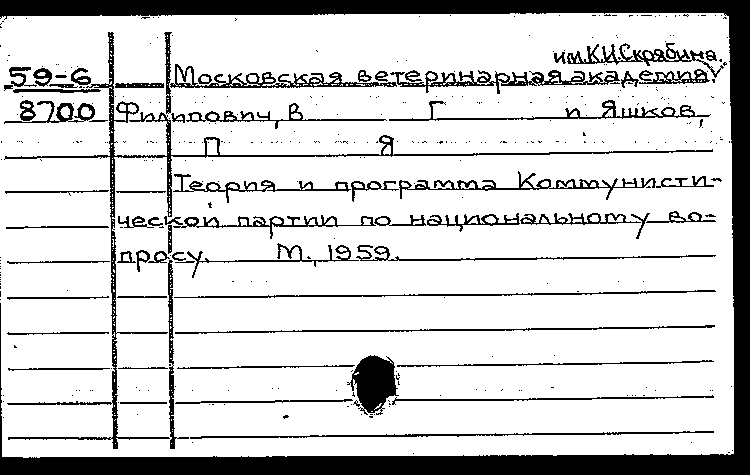 им. К.И. Скрябина
59-6 Московская ветеринарная академия
8700 Филипович, В Г и Яшков,
П Я
Теория и программа Коммунисти-
ческой партии по национальному во-
просу. М., 1959.